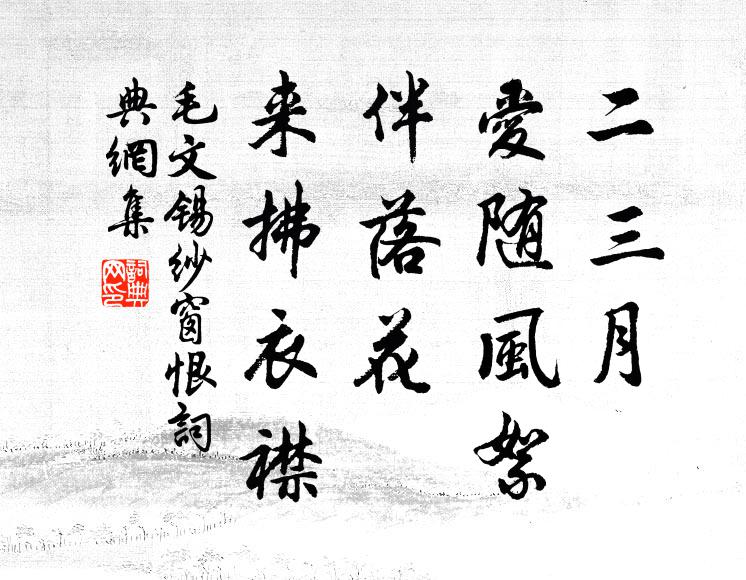 二三月
愛随風絮
伴落花
来拂衣襟
毛文锡纱窗恨詞
典網集
詞典网印